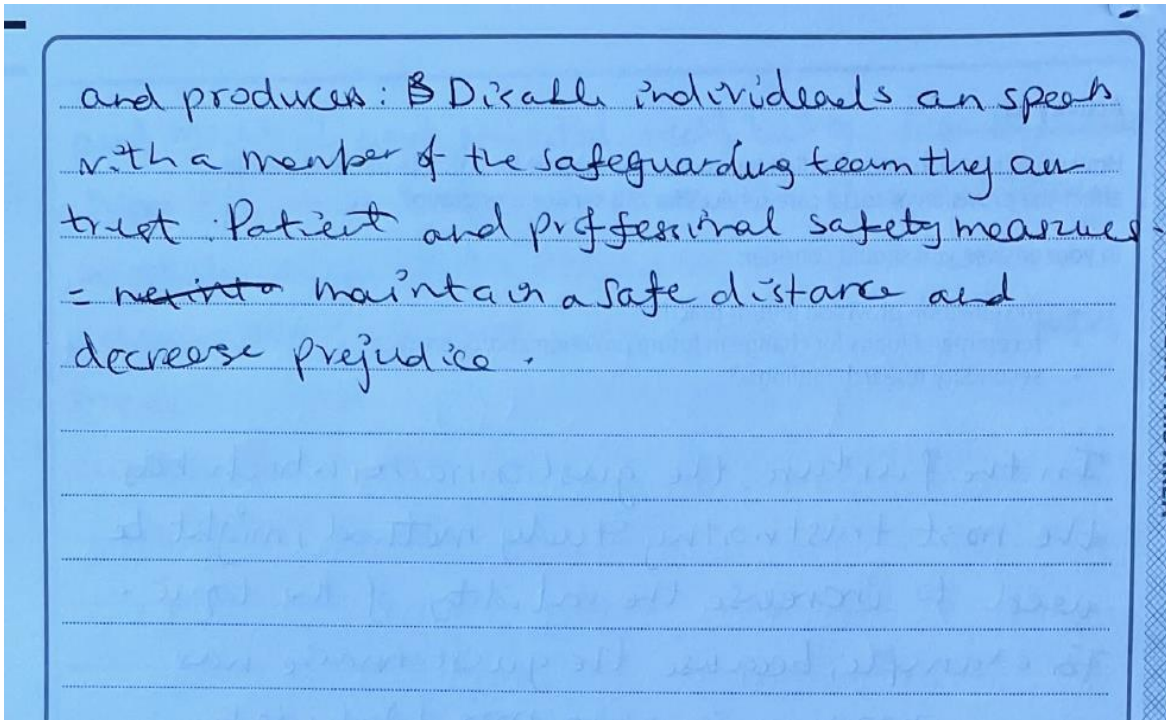 and produces: B Disable individeals an speak
with a member of the safeguarding team they an
trust. Patient and proffessinal safety measures.
= maintain a safe distance and
decrease prejudice.